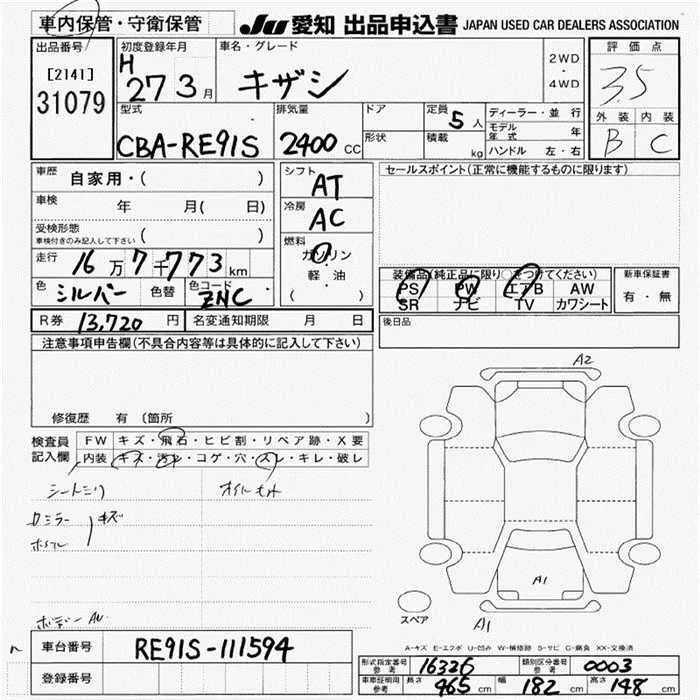 車内保管・守衛保管
JU 愛知 出品申込書 JAPAN USED CAR DEALERS ASSOCIATION
出品番号
[2141]
31079
初度登録年月
H 27 3月
車名・グレード
キザシ
2WD
・
4WD
評価点
3.5
外装 内装
B C
型式
CBA-RE91S
排気量
2400 CC
ドア
形状
定員 5人
積載 kg
ディーラー・並行
モデル年式 年
ハンドル 左・右
車歴 自家用・( )
車検 年 月( 日)
受検形態
車検付きのみ記入して下さい ( )
走行 16万7千773km
色 シルバー 色替 色コード ZNC
シフト AT
冷房 AC
燃料
ガソリン
軽・油
( )
R券 13,720円 名変通知期限 月 日
セールスポイント(正常に機能するものに限ります)
装備品(純正品に限り○をつけてください)
PS PW エアB AW
SR ナビ TV カワシート
新車保証書
有・無
後日品
注意事項申告欄(不具合内容等は具体的に記入して下さい)
修復歴 有 (箇所 )
検査員記入欄
FW キズ・飛石・ヒビ割・リペア跡・X要
内装 キズ・汚レ・コゲ・穴・スレ・キレ・破レ
キズ
A2
A1
A1
スペア
A-キズ E-エクボ U-凹み W-補修跡 S-サビ C-腐食 XX-交換済
車台番号 RE91S-111594
登録番号
形式指定番号 参考 16326 類別区分番号 参考 0003
車庫証明用 参考 長さ 465cm 幅 182cm 高さ 148cm